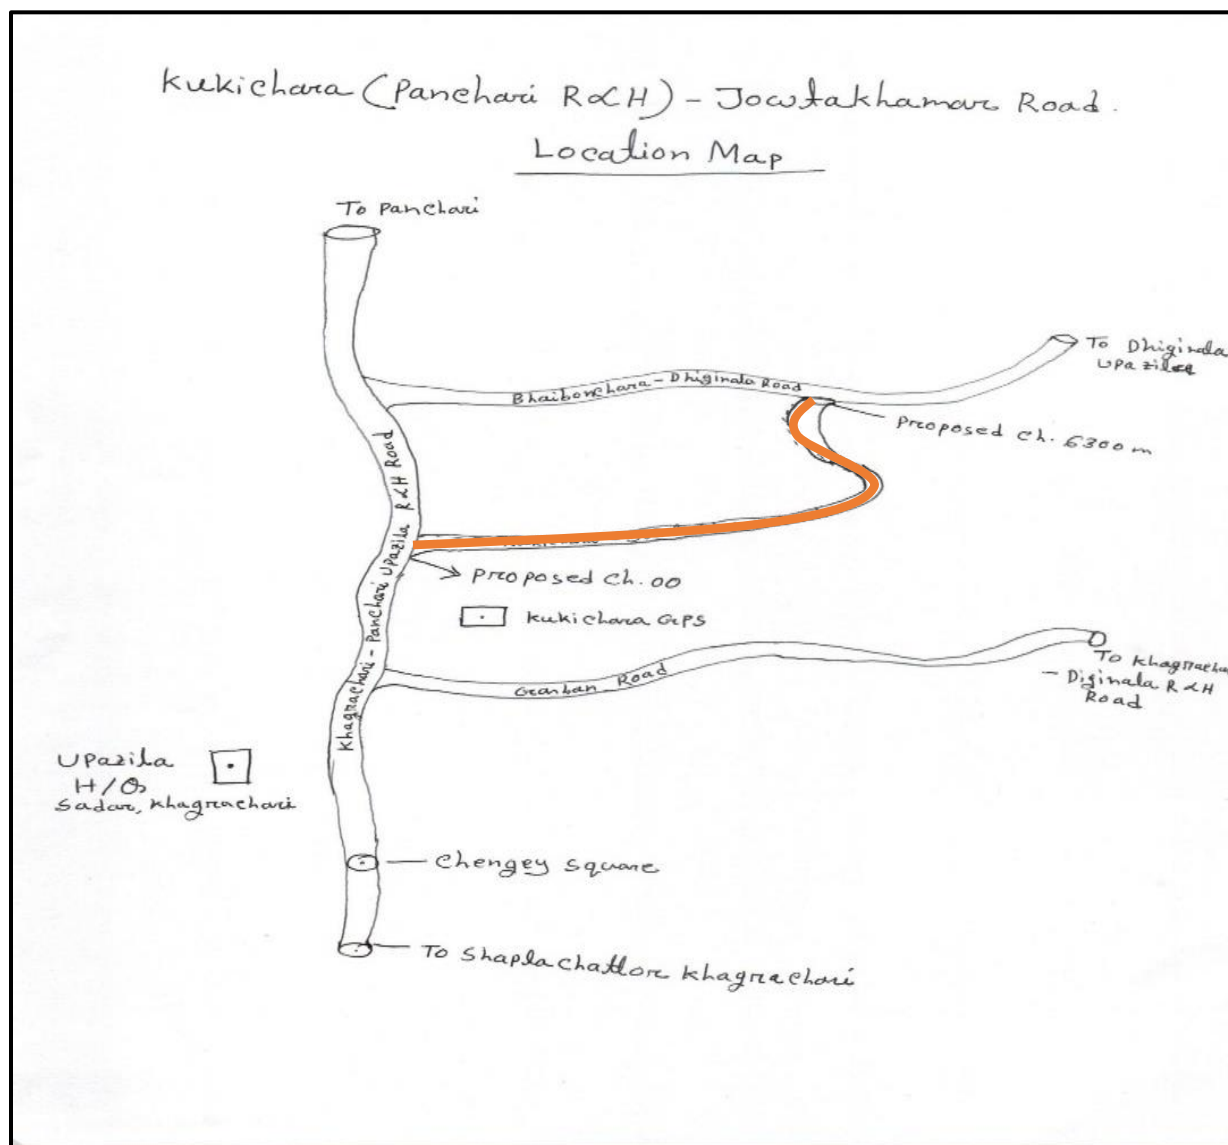 Kukichara (Panchari R&H) - Jowtakhamar Road.
Location Map
To Panchari
To Dhiginala
Upazila
Bhaibonchara - Dhiginala Road
Proposed Ch. 6300 m
Khagrachari - Panchari Upazila R&H Road
Proposed Ch. 00
Kukichara GPS
To Khagracha
- Diginala R&H
Road
Road
Upazila
H/Q
Sadar, Khagrachari
Chengey Square
To Shaplachattor Khagrachari